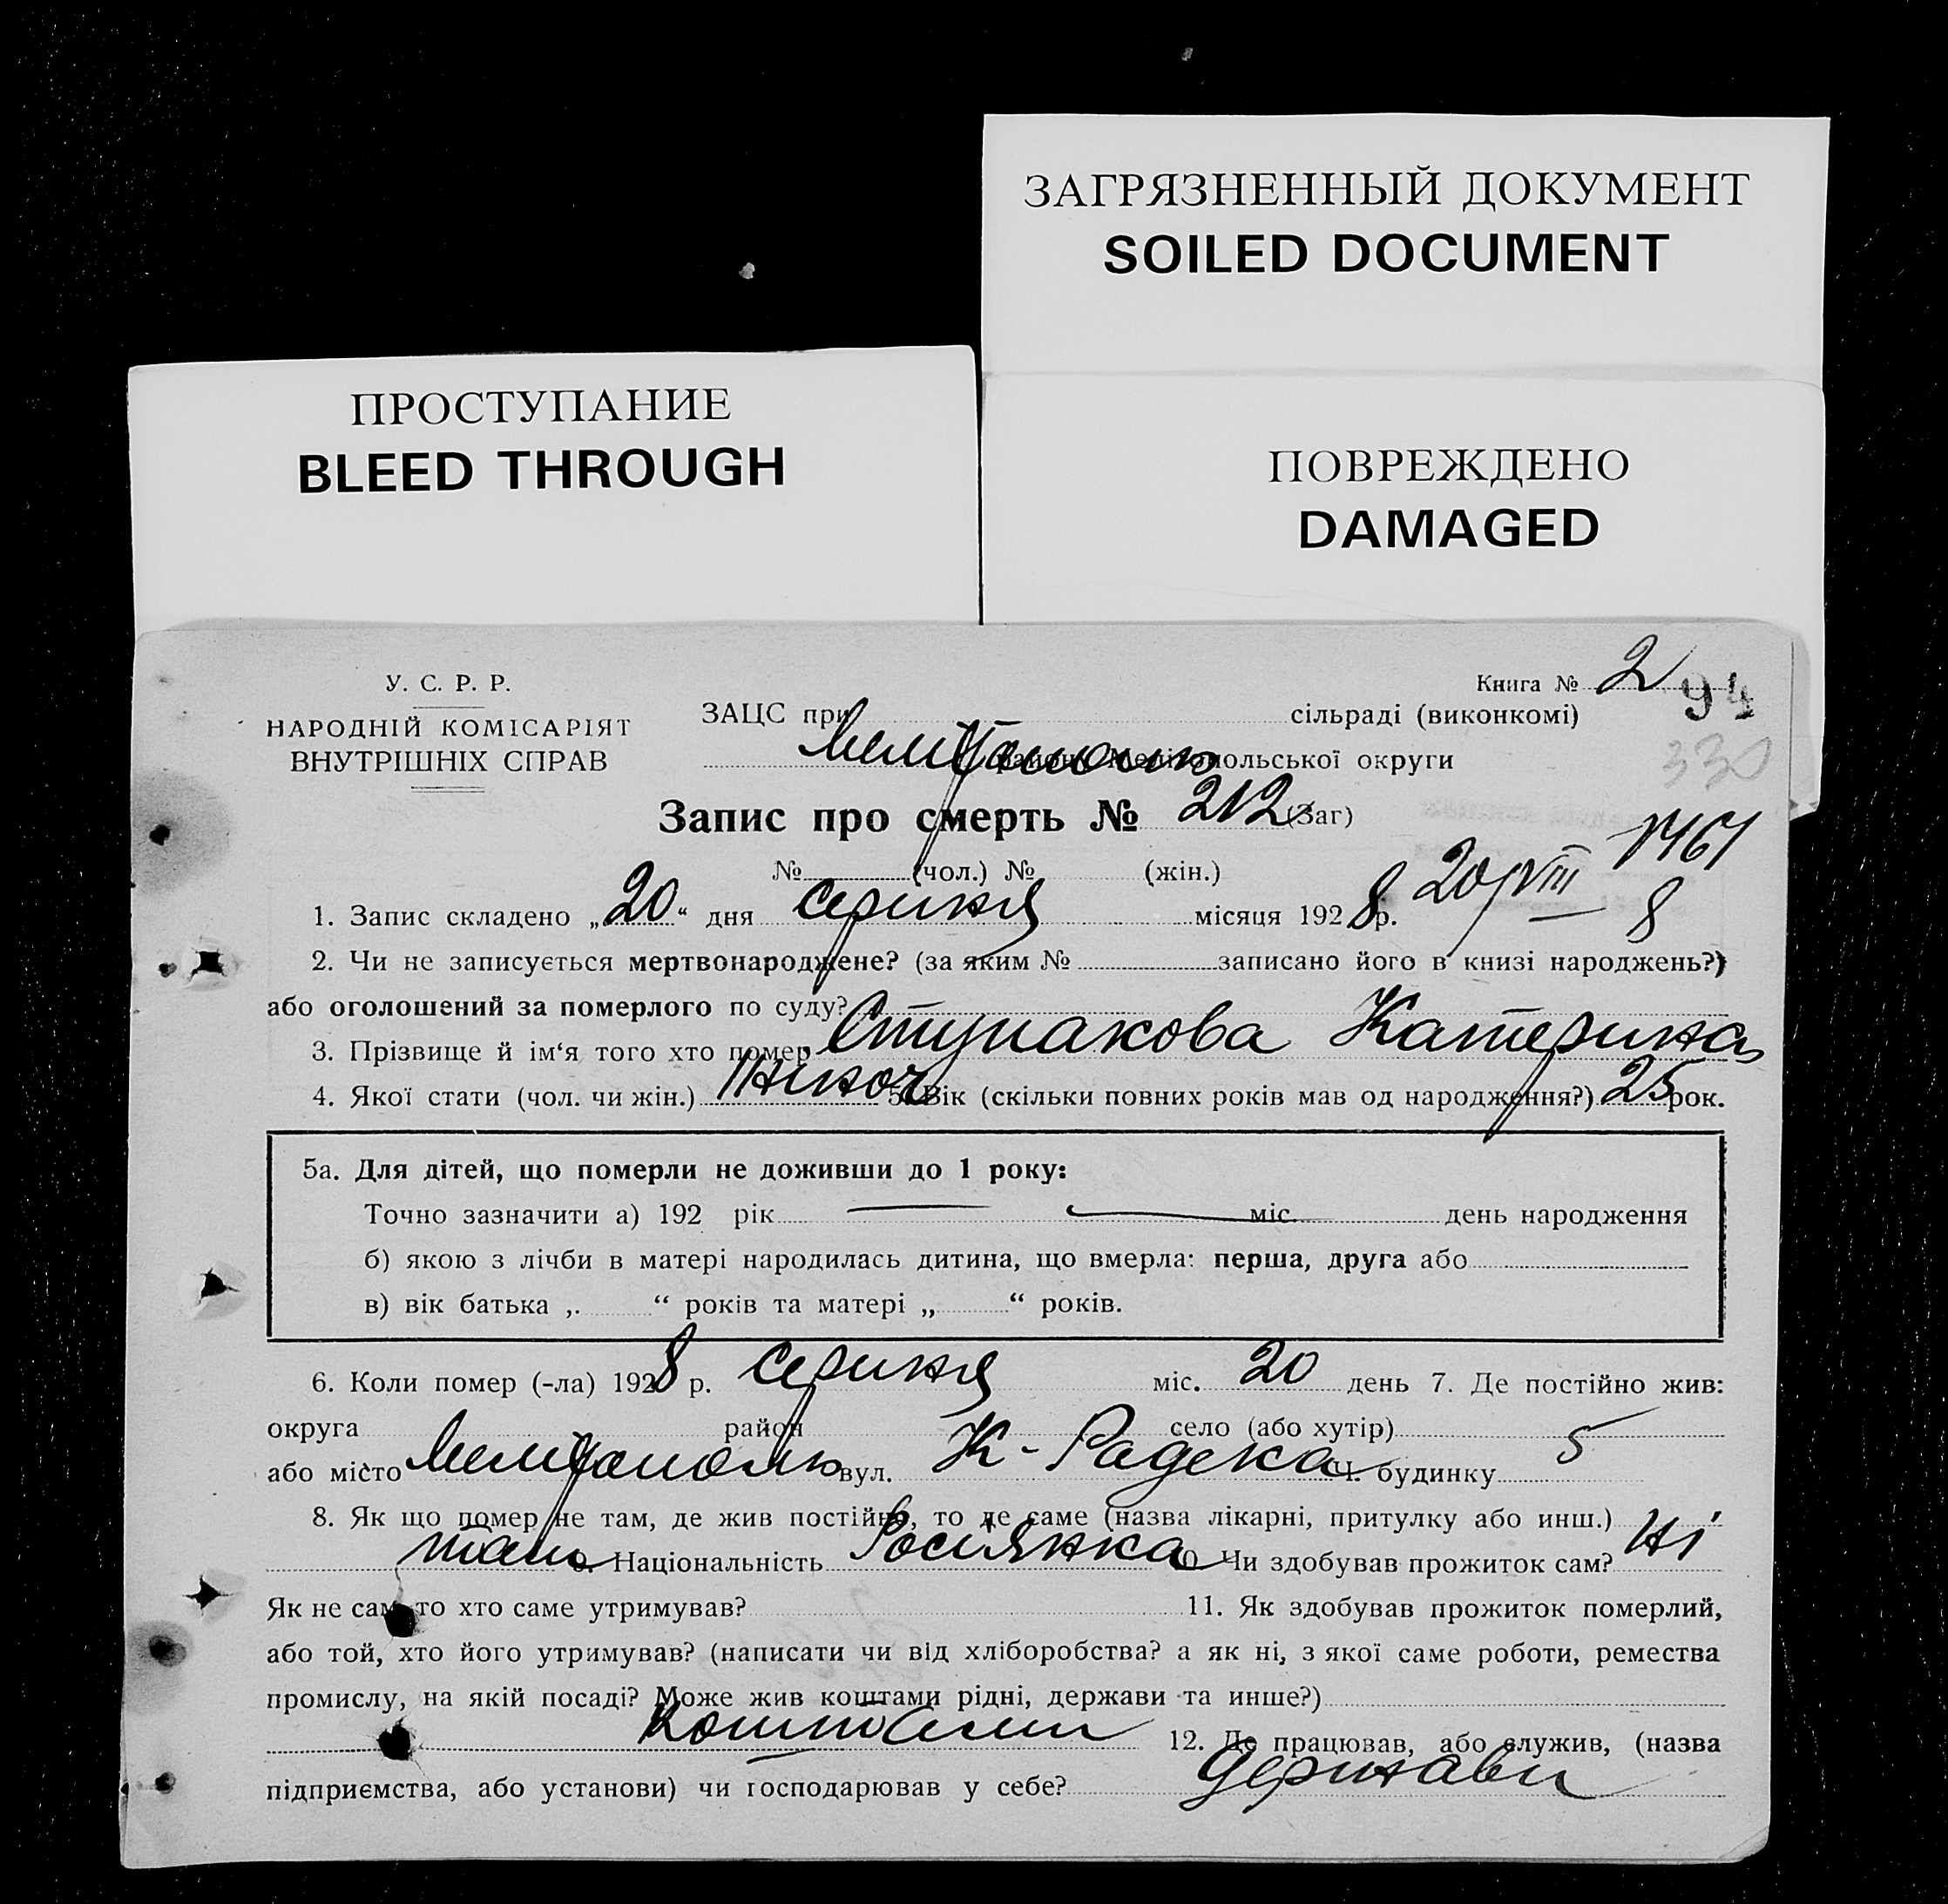 ЗАГРЯЗНЕННЫЙ ДОКУМЕНТ
SOILED DOCUMENT
ПРОСТУПАНИЕ
BLEED THROUGH
ПОВРЕЖДЕНО
DAMAGED
У. С. Р. Р.
НАРОДНІЙ КОМІСАРІЯТ
ВНУТРІШНІХ СПРАВ
Книга № 2
94
330
ЗАЦС при сільраді (виконкомі)
Мелітополь району Мелітопольської округи
Запис про смерть № 212 (Заг)
1461
№ (чол.) № (жін.)
20/VIII 8
1. Запис складено „20“ дня серпня місяця 1928 р.
2. Чи не записується мертвонароджене? (за яким № записано його в книзі народжень?)
або оголошений за померлого по суду?
3. Прізвище й ім‘я того хто помер Ступакова Катерина
4. Якої стати (чол. чи жін.) жіноч 5. Вік (скільки повних років мав од народження?) 25 рок.
5а. Для дітей, що померли не доживши до 1 року:
Точно зазначити а) 192 рік міс. день народження
б) якою з лічби в матері народилась дитина, що вмерла: перша, друга або
в) вік батька „ “ років та матері „ “ років.
6. Коли помер (-ла) 1928 р. серпня міс. 20 день 7. Де постійно жив:
округа район село (або хутір)
або місто Мелітополь вул. К-Радека ч. будинку 5
8. Як що помер не там, де жив постійно, то де саме (назва лікарні, притулку або инш.)
там 9. Національність Росіянка 10. Чи здобував прожиток сам? Ні
Як не сам, то хто саме утримував? 11. Як здобував прожиток померлий,
або той, хто його утримував? (написати чи від хліборобства? а як ні, з якої саме роботи, ремества
промислу, на якій посаді? Може жив коштами рідні, держави та инше?)
коштами 12. Де працював, або служив, (назва
підприємства, або установи) чи господарював у себе? держави